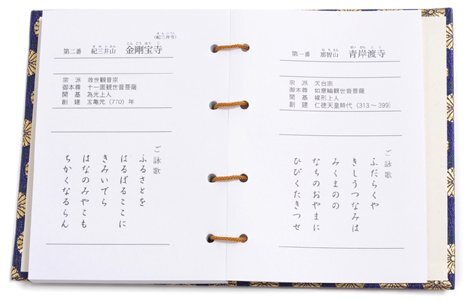 第一番 那智山 青岸渡寺
宗派 天台宗
御本尊 如意輪観世音菩薩
開基 裸形上人
創建 仁徳天皇時代(313~399)
ご詠歌
ふだらくや
きしうつなみは
みくまのの
なちのおやまに
ひびくたきつせ
(紀三井寺)
第二番 紀三井山 金剛宝寺
宗派 救世観音宗
御本尊 十一面観世音菩薩
開基 為光上人
創建 宝亀元(770)年
ご詠歌
ふるさとを
はるばるここに
きみいでら
はなのみやこも
ちかくなるらん